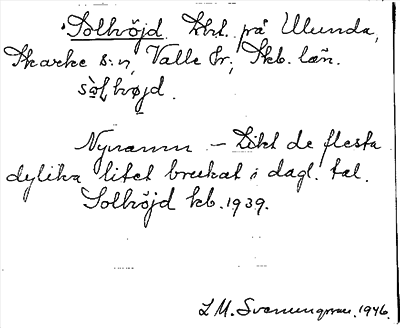 Solhöjd. Lht. på Ulunda,
Skarke s:n, Valle hr; Skb. län.
sòlhøjd.
Nynamn – Likt de flesta
dylika litet brukat i dagl. tal.
Solhöjd kb. 1939.
L M. Svenungsson. 1946.